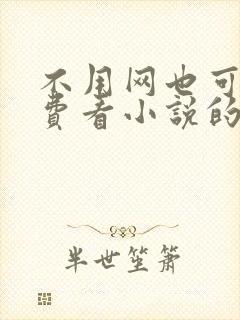 不用网也可
费看小说的
半世笙箫